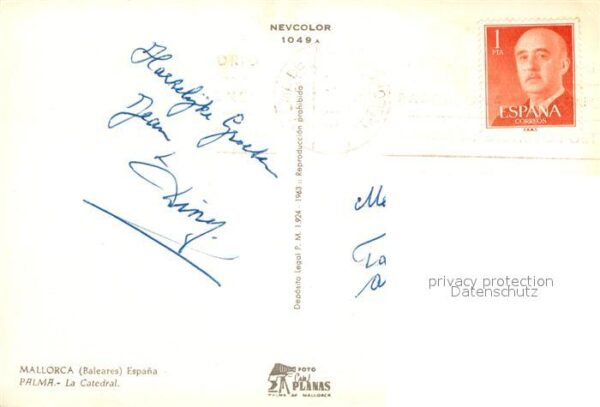 NEVCOLOR
1049 A
1
PTA
ESPAÑA
CORREOS
Hartelijke Groeten
Jean
Diny
Depósito Legal P. M. 1.924 - 1963 :: Reproducción prohibida
Me
privacy protection
Datenschutz
MALLORCA (Baleares) España
PALMA.- La Catedral.
FOTO
Casa
PLANAS
PALMA DE MALLORCA